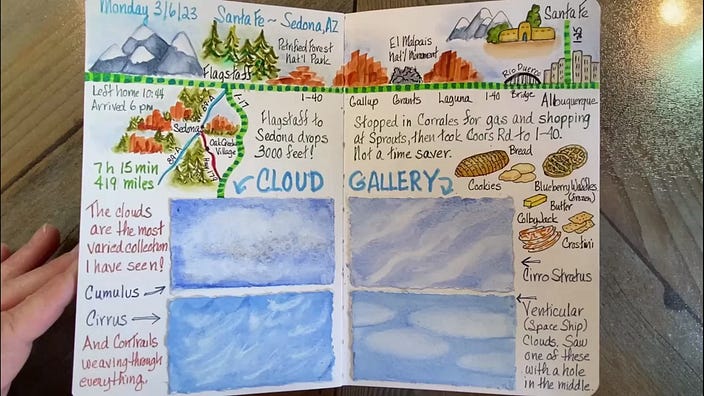 Monday 3/6/23
Santa Fe ~ Sedona, AZ
Petrified Forest
Nat'l Park
Flagstaff
Left home 10:44
Arrived 6 pm
89-A
I-17
I-40
Sedona
Oak Creek
Village
89-A
Flagstaff to
Sedona drops
3000 feet!
7 h 15 min
419 miles
CLOUD
The clouds
are the most
varied collection
I have seen!
Cumulus
Cirrus
And Contrails
weaving through
everything.
El Malpais
Nat'l Monument
Santa Fe
I-25
Rio Puerco
Bridge
Gallup
Grants
Laguna
I-40
Albuquerque
Stopped in Corrales for gas and shopping
at Sprouts, then took Coors Rd to I-40.
Not a time saver.
Bread
GALLERY
Cookies
Blueberry Waffles
(frozen)
Butter
Colby Jack
Crostini
Cirro Stratus
Venticular
(Space Ship)
Clouds. Saw
one of these
with a hole
in the middle.